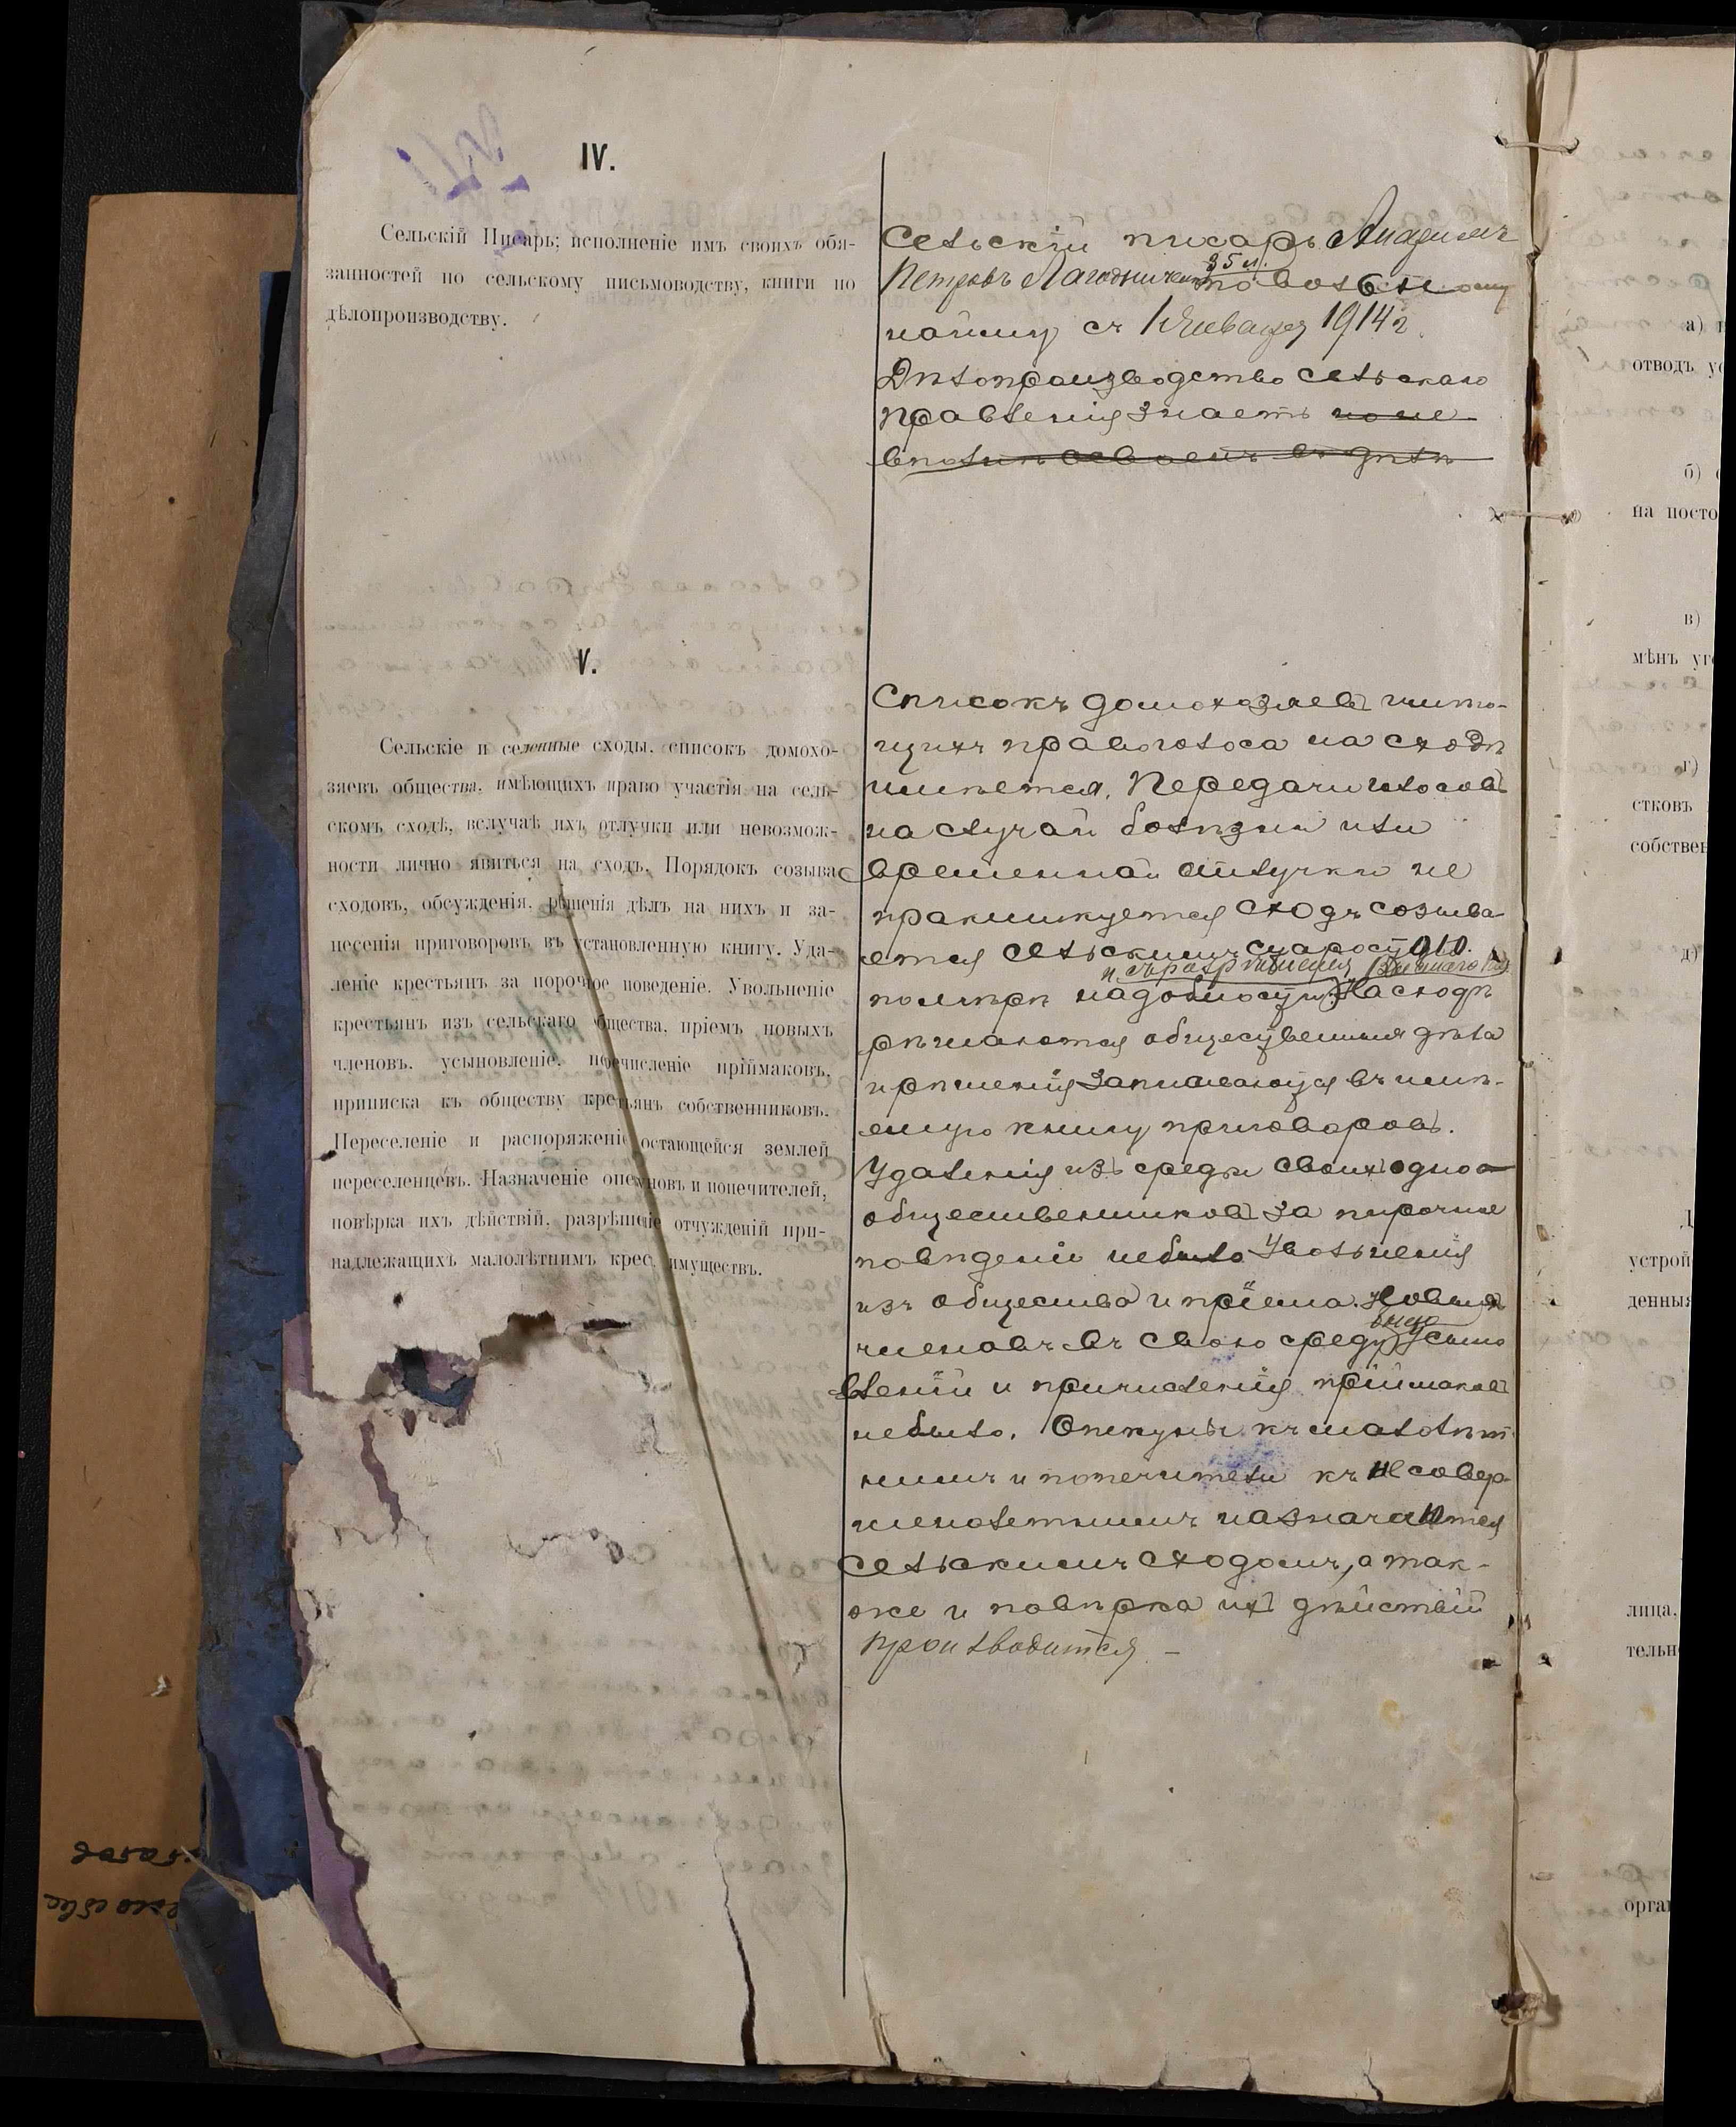 IV.
Сельскій Писарь; исполненіе имъ своихъ обя-
занностей по сельскому письмоводству, книги по
дѣлопроизводству.
Сельскій писарь
Петровъ 35 л. по вольному
найму съ 1 Января 1914 г.
Дѣлопроизводство сельскаго
правленія знаетъ но не
вполнѣ въ дѣлѣ
V.
Сельскіе и селенные сходы. список домохо-
зяевъ общества, имѣющихъ право участія на сель-
скомъ сходѣ, вслучаѣ ихъ отлучки или невозмож-
ности лично явиться на сходъ. Порядокъ созыва
сходовъ, обсужденія, рѣшенія дѣлъ на нихъ и за-
несенія приговоровъ въ установленную книгу. Уда-
леніе крестьянъ за порочное поведеніе. Увольненіе
крестьянъ изъ сельскаго бщества, пріемъ новыхъ
членовъ, усыновленіе, причисленіе пріймаковъ,
приписка къ обществу кретьянъ собственниковъ.
Переселеніе и распоряженіе остающейся землей
переселенцевъ. Назначеніе опекуновъ и попечителей,
повѣрка ихъ дѣйствій, разрѣшеніе отчужденій при-
надлежащихъ малолѣтнимъ крес. имуществъ.
Списокъ домохозяевъ имею-
щихъ право голоса на сходѣ
имѣется. Передачи голосовъ
на случай болѣзни или
временной отлучки не
практикуется Сходъ созыва-
ется Сельскимъ старостою.
и съ разрѣшенія
по мѣрѣ надобности. На сходѣ
рѣшаются общественныя дѣла
и рѣшенія записываются въ имѣ-
емую книгу приговоровъ.
Удаленія изъ среды своихъ одно-
общественниковъ за порочное
поведеніе небыло Увольненія
изъ общества и пріема новыхъ
членовъ въ свою среду Усыно
вленій и причисленія пріймаковъ
небыло. Опекуны къ малолѣт
нимъ и попечители къ несовер
шенолетнимъ назначаются
Сельскимъ Сходомъ, а так-
же и повѣрка ихъ дѣйствій
производится –
а)
отводъ
б)
на посто
в)
мѣнъ
г)
стковъ
собствен
д)
устрой
денныя
лица,
тельн
орган